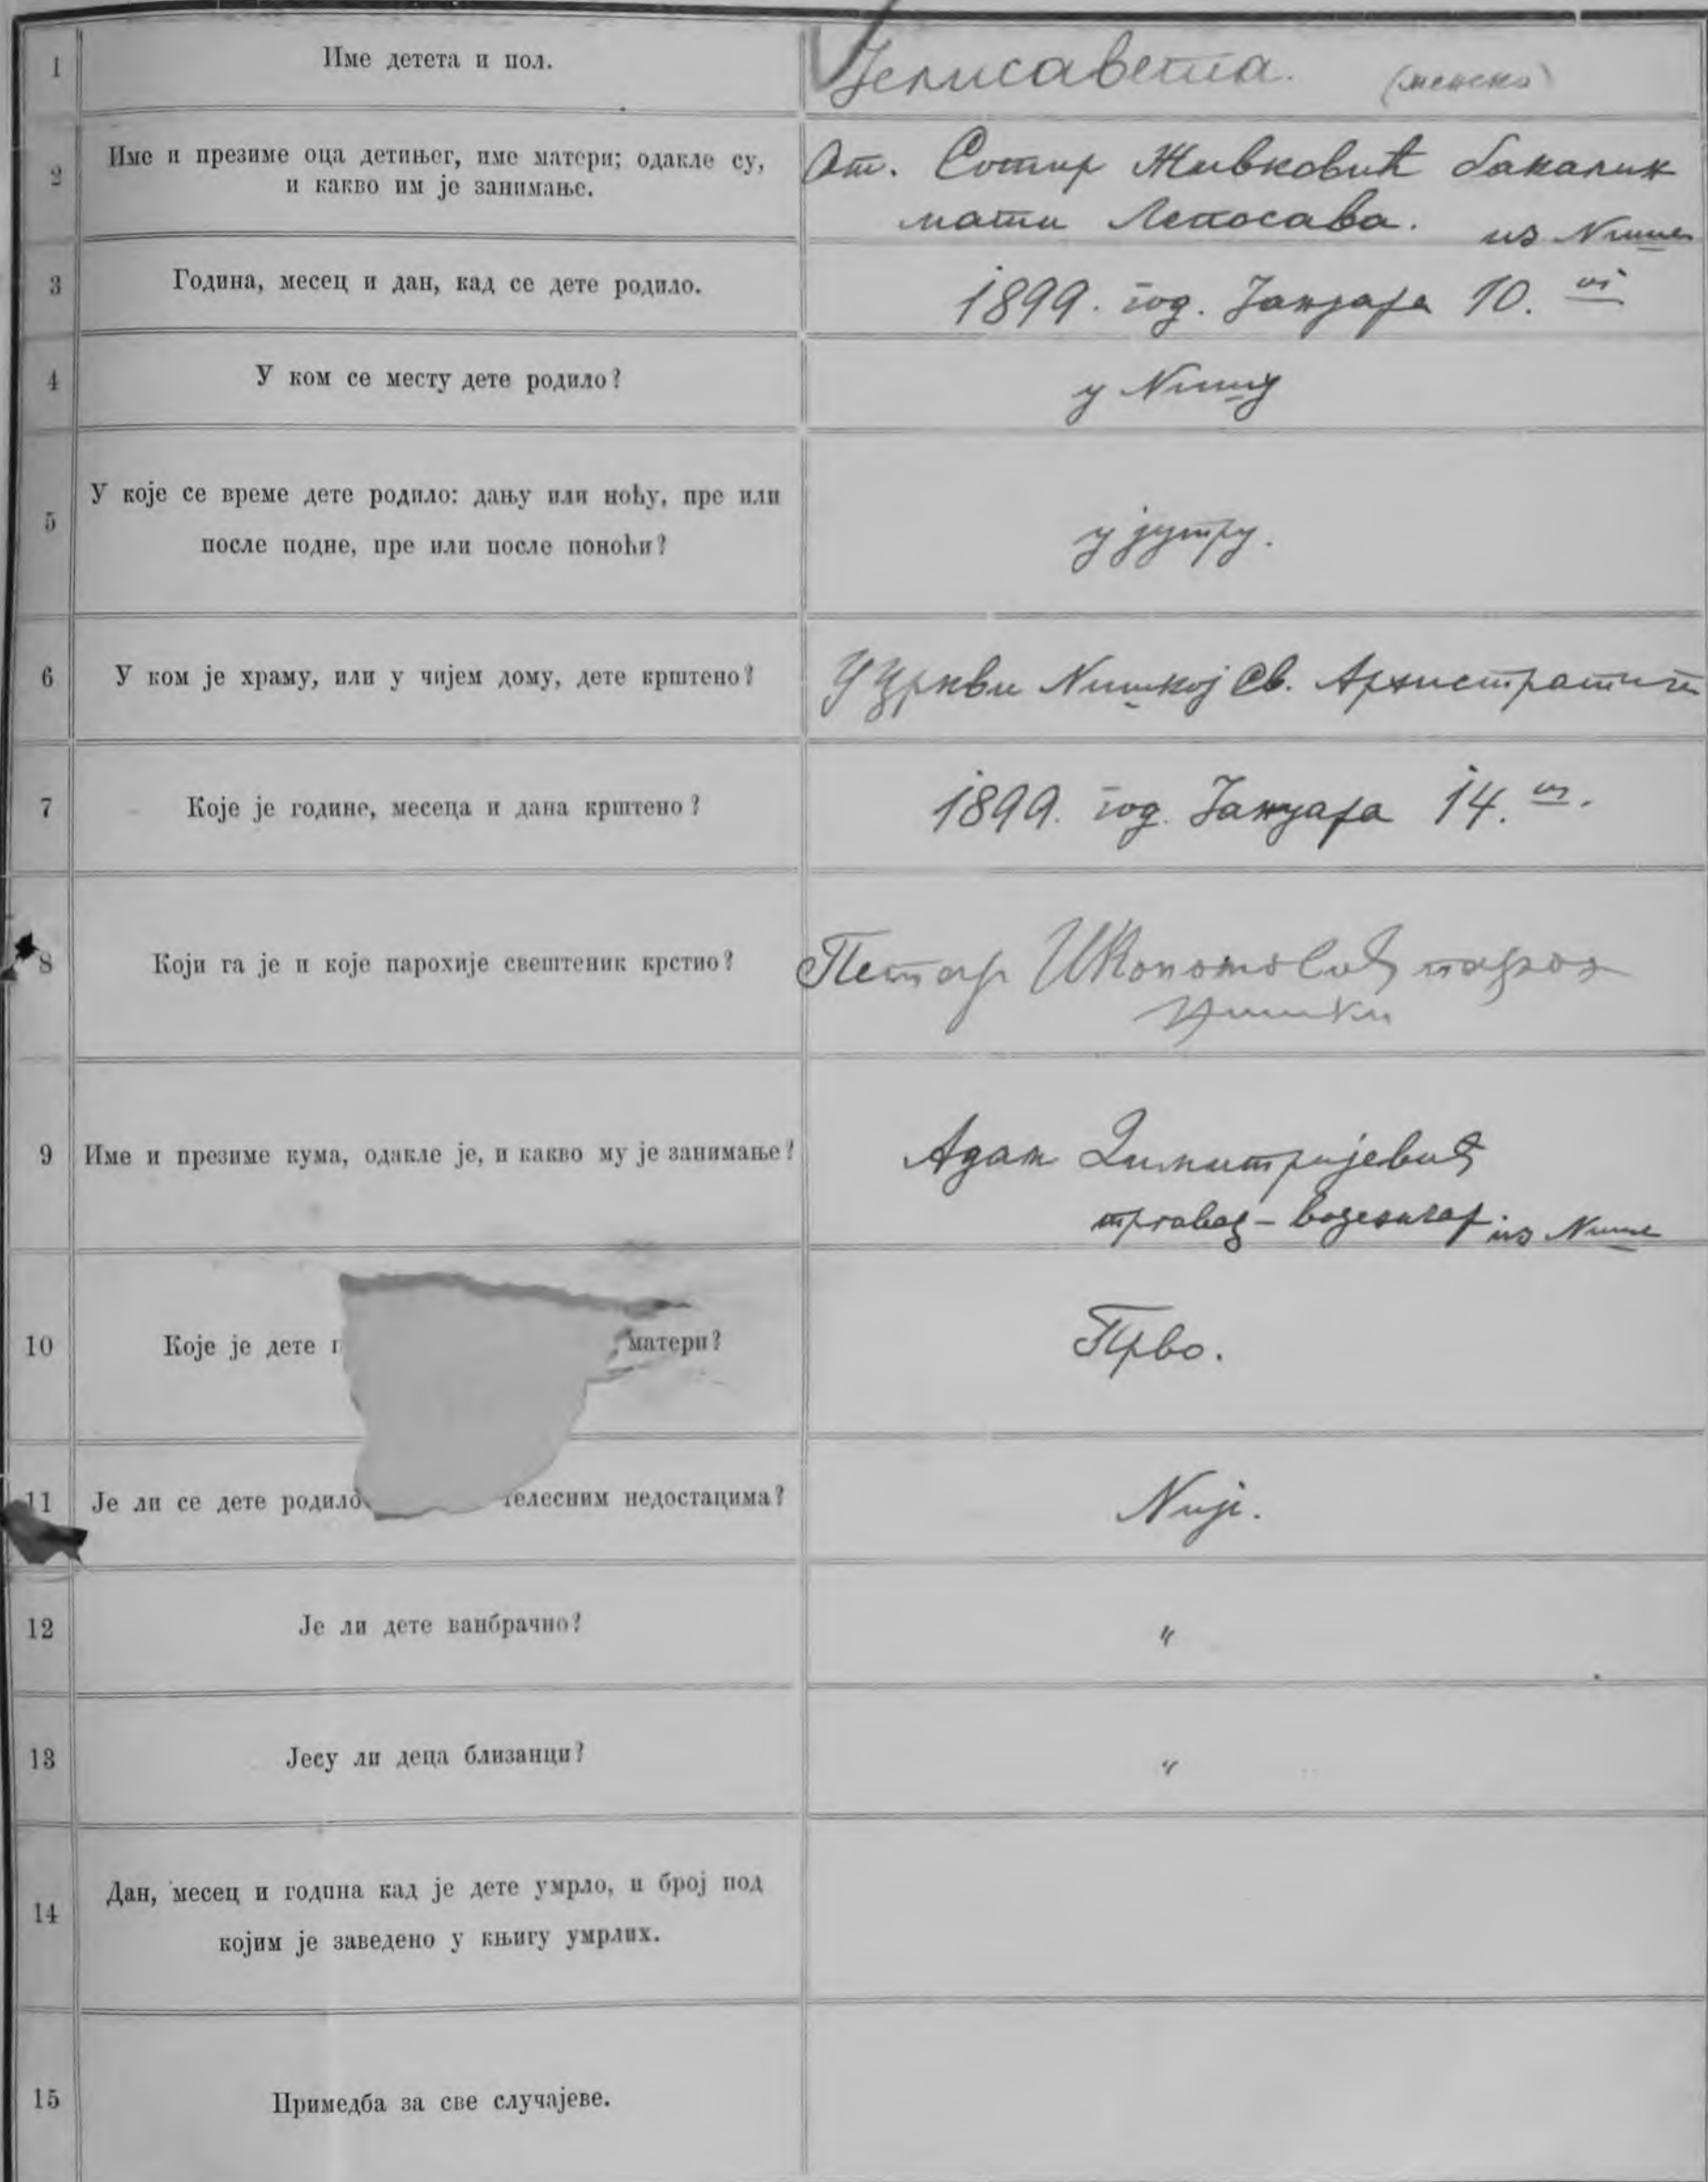 1 Име детета и пол. Јелисавета. (женско)
2 Име и презиме оца детињег, име матери; одакле су, От. Сотир Живковић бакалин
и какво им је занимање. мати Лепосава. из Ниша
3 Година, месец и дан, кад се дете родило. 1899. год. Јануара 10. ог
4 У ком се месту дете родило? у Нишу
5 У које се време дете родило: дању или ноћу, пре или
после подне, пре или после поноћи? у јутру.
6 У ком је храму, или у чијем дому, дете крштено? У Цркви Нишкој Св. Архистратига
7 Које је године, месеца и дана крштено? 1899. год. Јануара 14. ог.
8 Који га је и које парохије свештеник крстио? Петар Икономовић парох
нишки
9 Име и презиме кума, одакле је, и какво му је занимање? Адам Димитријевић
трговац - из Ниша
10 Које је дете матери? Прво.
11 Је ли се дете родило телесним недостацима? Није.
12 Је ли дете ванбрачно? "
13 Јесу ли деца близанци? "
14 Дан, месец и година кад је дете умрло, и број под
којим је заведено у књигу умрлих.
15 Примедба за све случајеве.